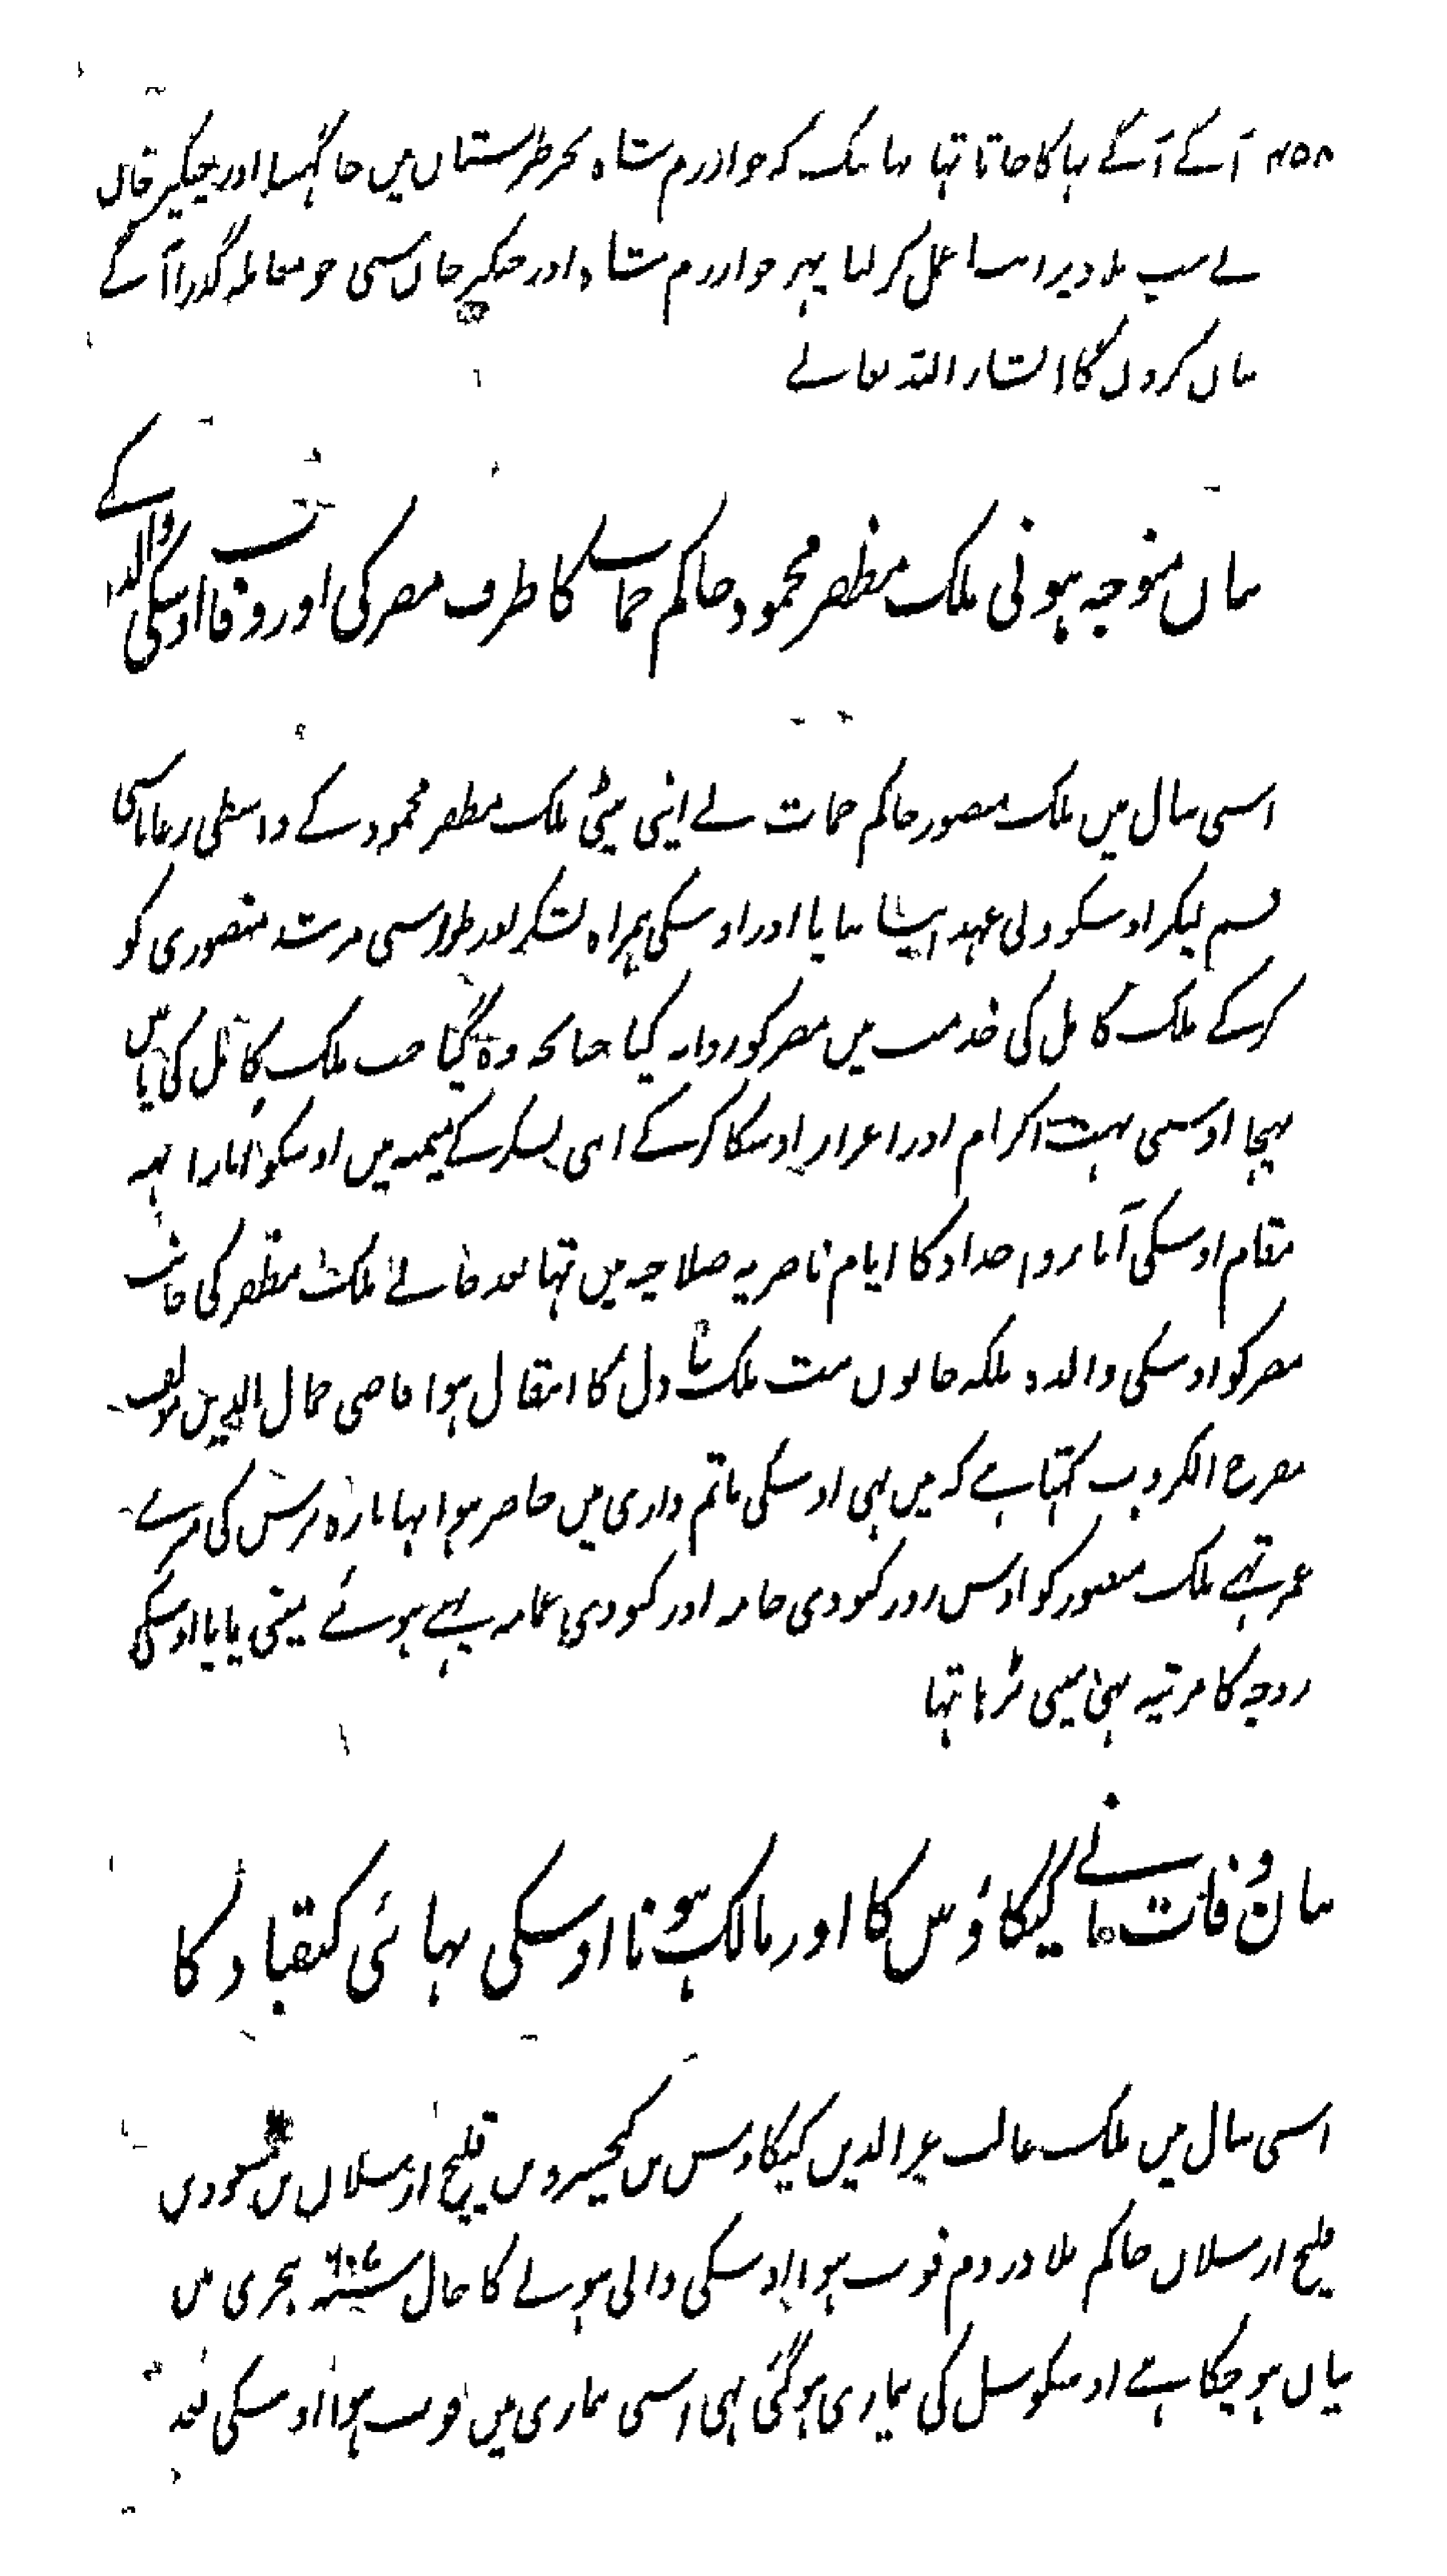 ۴۵۸ آگے آگے بہاگا جاتا تہا یہانتک کہ خوارزم شاہ بحر طبرستان میں جا گہسا اور چنگیز خان
نے سب بلاد پر اوسکا عمل کر لیا پہر خوارزم شاہ اور چنگیز خان سی جو معاملہ گذرا آگے
بیان کرون گا انشاء اللہ تعالے
بیان متوجہ ہونی ملک مظفر محمود حاکم حمات کا طرف مصر کی اور وفات اوسکی والدہ کے
اسی سال میں ملک منصور حاکم حمات نے اپنی بیٹی ملک مظفر محمود کے واسطی رعایا سی
قسم لیکر اوسکو ولی عہد اپنا بنایا اور اوسکی ہمراہ لشکر اور طواسی مرشد منصوری کو
کرکے ملک کامل کی خدمت میں مصر کو روانہ کیا چنانچہ وہ گیا جب ملک کامل کی پاس
پہنچا اوسی بہت اکرام اور اعزاز اوسکا کرکے اپنی لشکر کے میمنہ میں اوسکو اتارا یہہ
مقام اوسکی آباء و اجداد کا ایام ناصریہ صلاحیہ میں تہا بعد جانے ملک مظفر کی جانب
مصر کو اوسکی والدہ ملکہ خاتون بنت ملک عادل کا انتقال ہوا قاضی جمال الدین مولف
مفرج الکروب کہتا ہے کہ میں بہی اوسکی ماتم داری میں حاضر ہوا تہا بارہ برس کی میرے
عمر تہے ملک منصور کو اوس روز کبودی جامہ اور کبودی عمامہ پہنے ہوئے میں نی پایا اوسکی
زوجہ کا مرثیہ بہی میں نی پڑہا تہا
بیان وفات پانے کیکاؤس کا اور مالک ہونا اوسکی بہائی کیقباد کا
اسی سال میں ملک غالب عز الدین کیکاوس بن کیخسرو بن قلیج ارسلان بن مسعود بن
قلیج ارسلان حاکم بلاد روم فوت ہوا اوسکی والی ہونے کا حال سنہ ۶۰۷ ہجری میں
بیان ہوچکا ہے اوسکو سل کی بیماری ہوگئی تہی اسی بیماری میں فوت ہوا اوسکی بعد